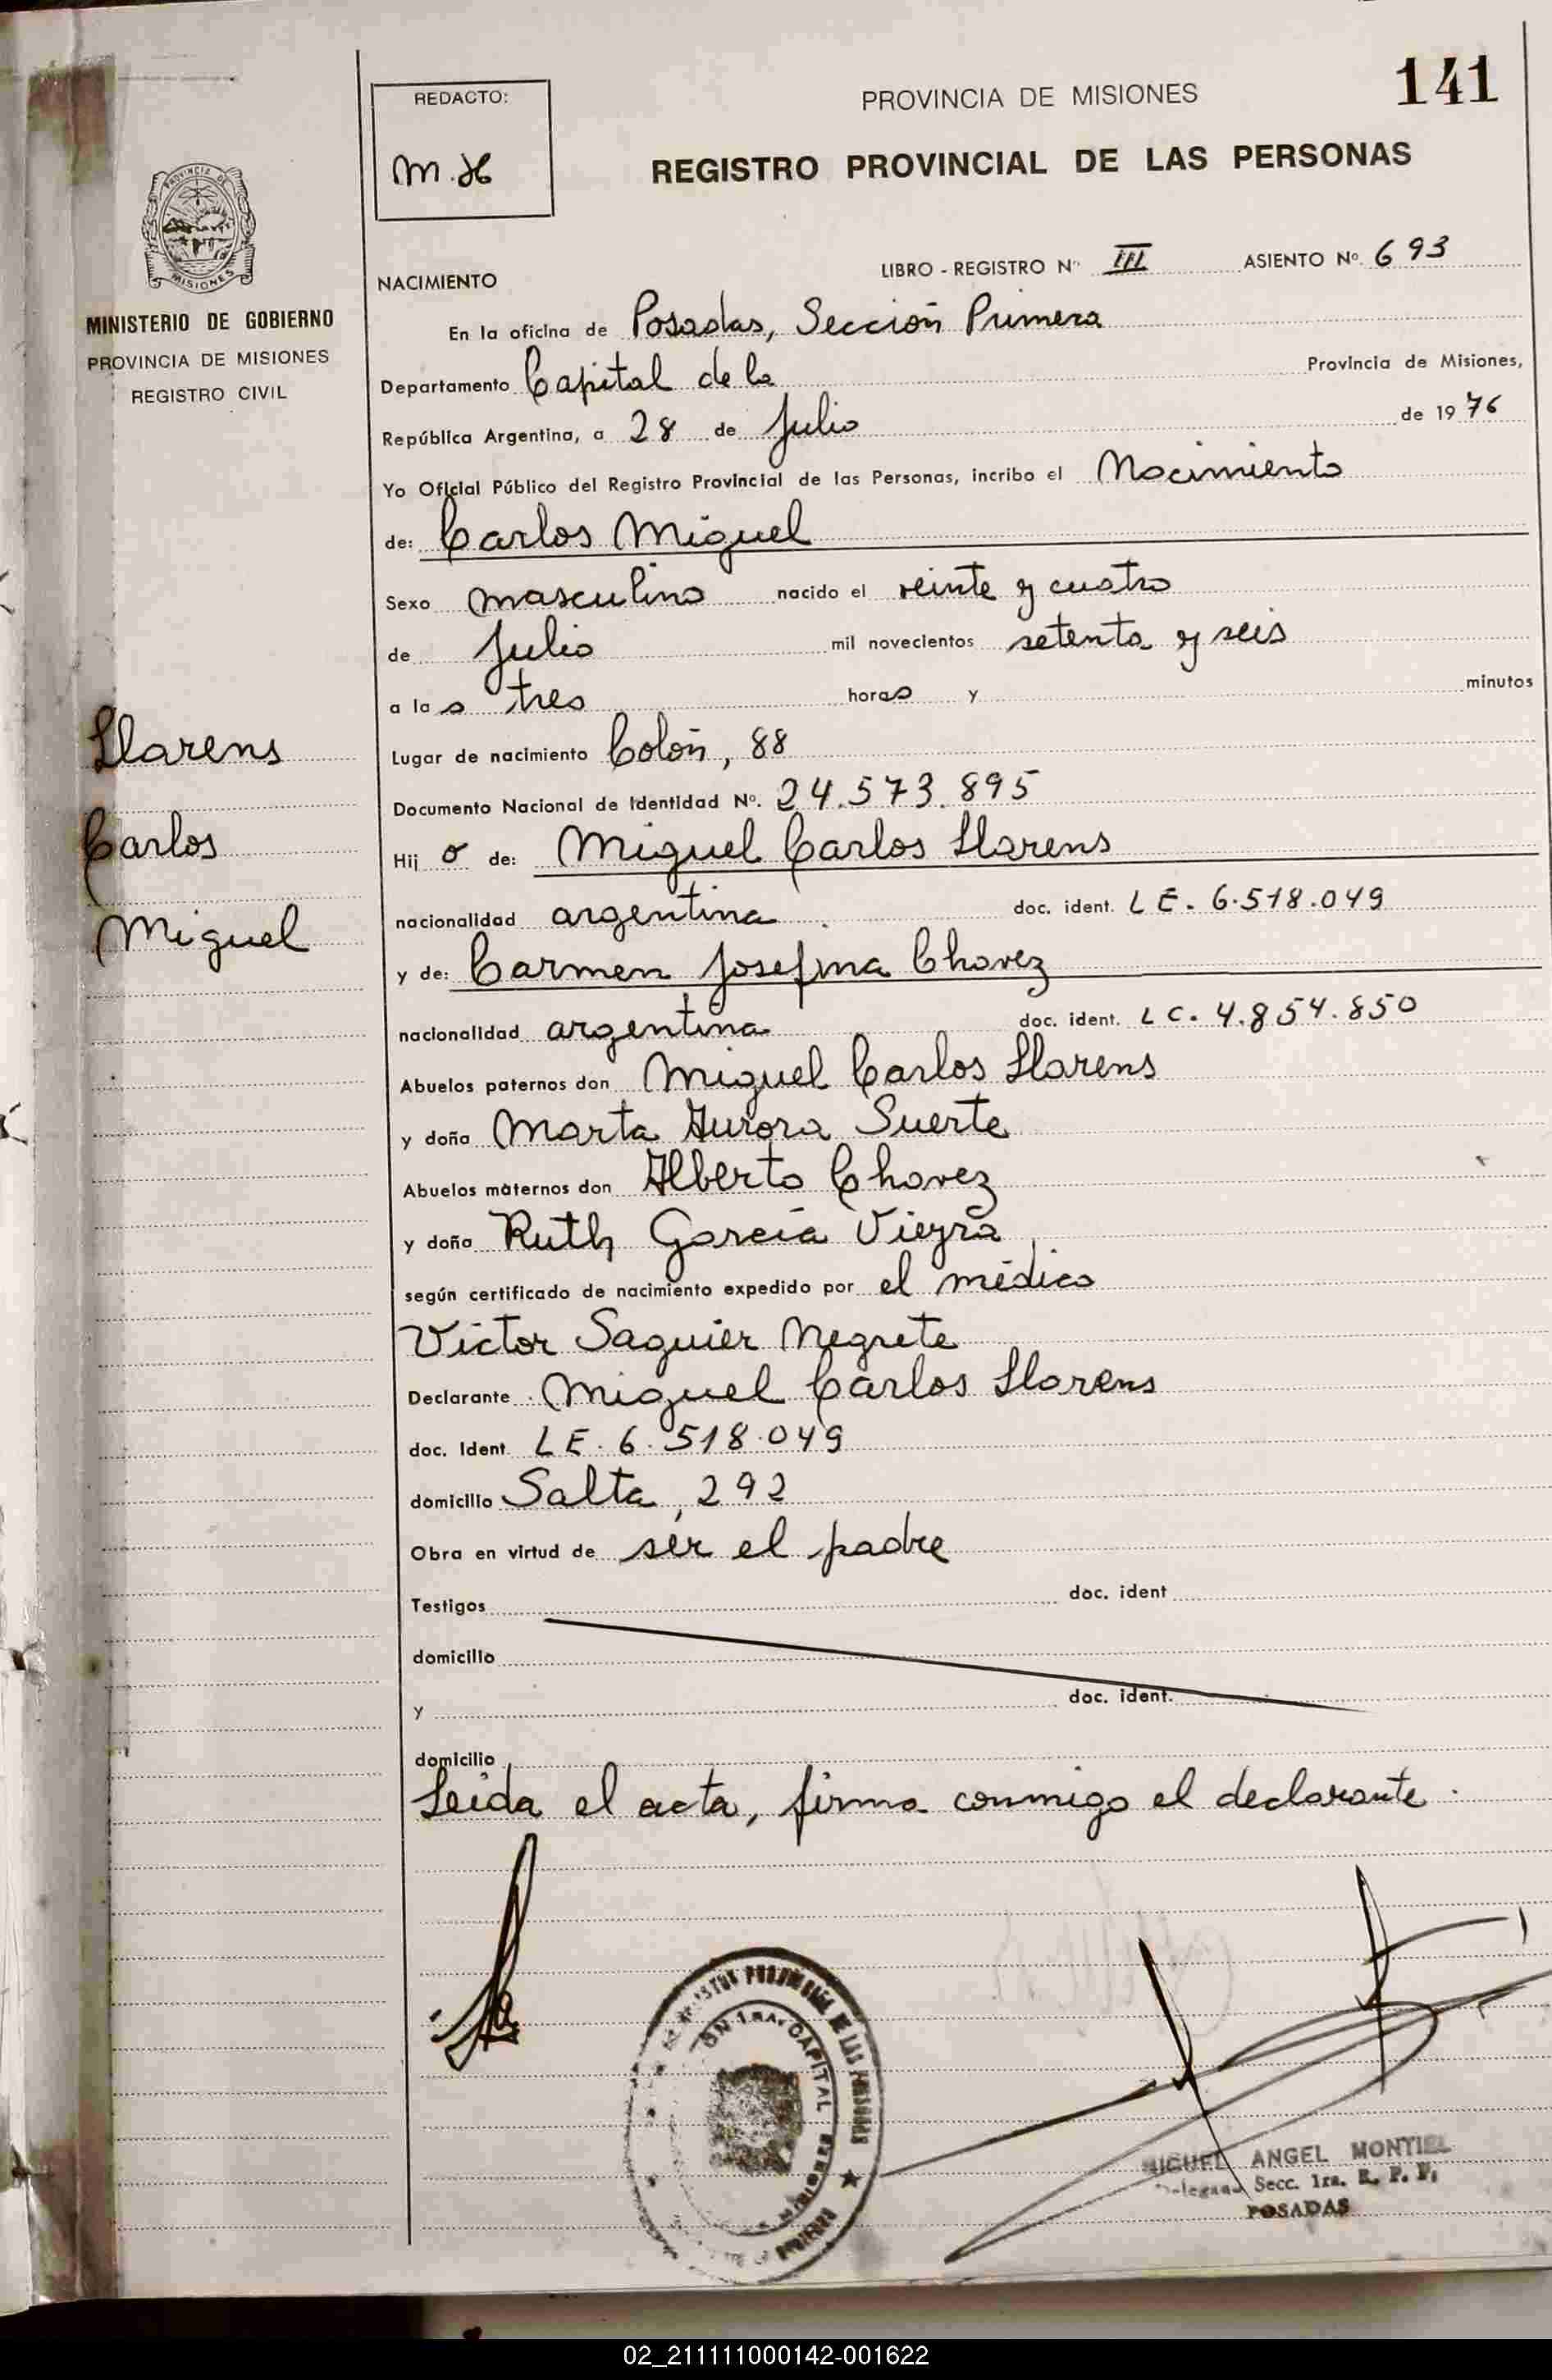 141
REDACTO:
M.H
PROVINCIA DE MISIONES
REGISTRO PROVINCIAL DE LAS PERSONAS
PROVINCIA DE
MISIONES
MINISTERIO DE GOBIERNO
PROVINCIA DE MISIONES
REGISTRO CIVIL
NACIMIENTO
LIBRO - REGISTRO Nº III ASIENTO Nº 693
En la oficina de Posadas, Sección Primera
Departamento Capital de la Provincia de Misiones,
República Argentina, a 28 de Julio de 1976
Yo Oficial Público del Registro Provincial de las Personas, incribo el Nacimiento
de: Carlos Miguel
Sexo masculino nacido el veinte y cuatro
de Julio mil novecientos setenta y seis
a las tres horas y minutos
Llarens
Carlos
Miguel
Lugar de nacimiento Colón, 88
Documento Nacional de Identidad Nº. 24.573.895
Hijo de: Miguel Carlos Llarens
nacionalidad argentina doc. ident. LE. 6.518.049
y de: Carmen Josefina Chavez
nacionalidad argentina doc. ident. LC. 4.854.850
Abuelos paternos don Miguel Carlos Llarens
y doña Marta Aurora Suerte
Abuelos maternos don Alberto Chavez
y doña Ruth García Vieyra
según certificado de nacimiento expedido por el médico
Víctor Saguier Negrete
Declarante Miguel Carlos Llarens
doc. Ident LE. 6.518.049
domicilio Salta, 292
Obra en virtud de ser el padre
Testigos doc. ident
domicilio
y doc. ident.
domicilio
Leída el acta, firma conmigo el declarante.
DE LAS PERSONAS
1RA. CAPITAL
MIGUEL ANGEL MONTIEL
Delegado Secc. 1ra. R. P. P.
POSADAS
02_211111000142-001622